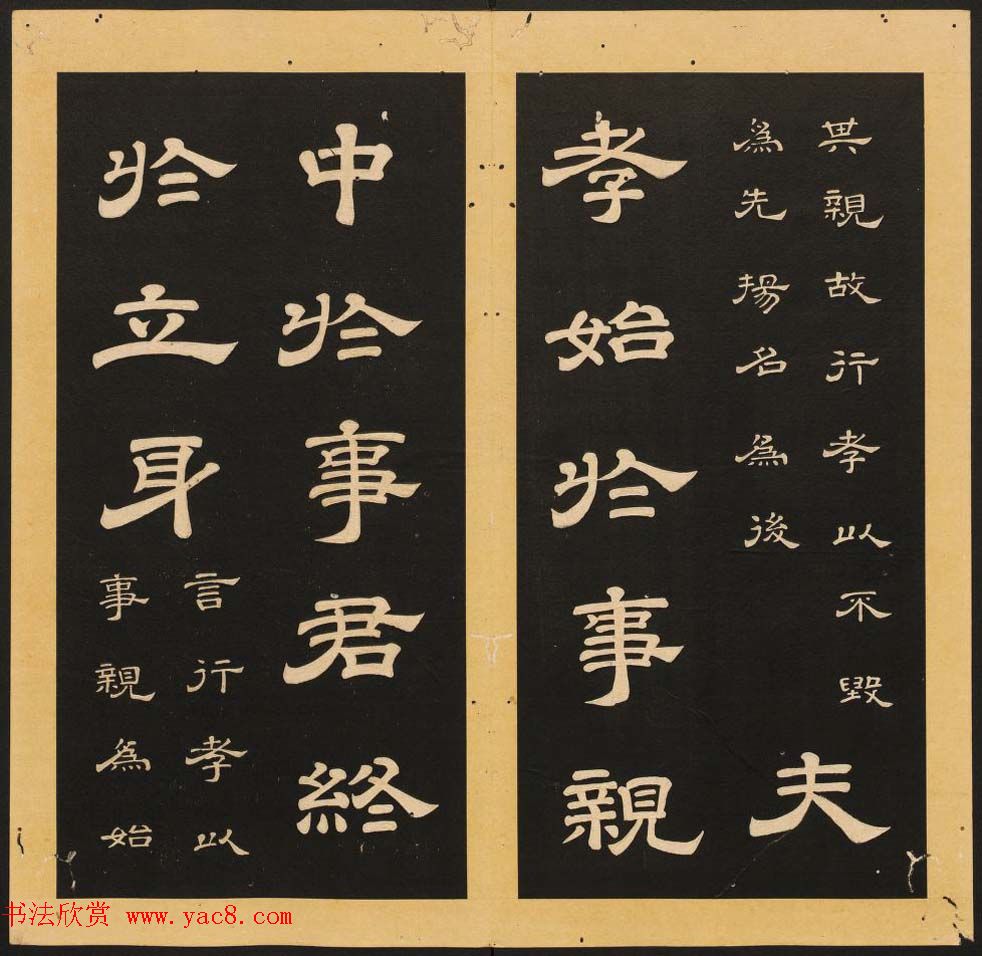 其親故行孝以不毀
為先揚名為後
夫
孝始於事親
中於事君終
於立身
言行孝以
事親為始
书法欣赏 www.yac8.com